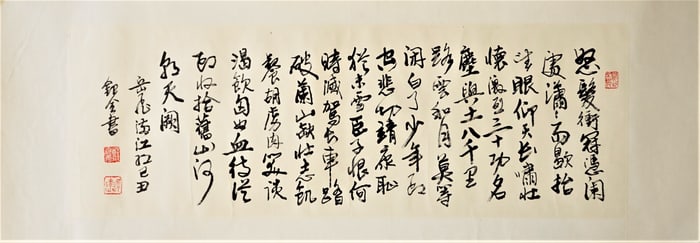 怒髮衝冠憑闌
處瀟々雨歇抬
望眼仰天長嘯壯
懷激烈三十功名
塵與土八千里
路雲和月莫等
閒白了少年頭
空悲切靖康恥
猶未雪臣子恨何
時滅駕長車踏
破蘭山缺壯志飢
餐胡虜肉笑談
渴飲匈奴血待從
頭收拾舊山河
朝天闕
岳飛滿江紅己丑
書